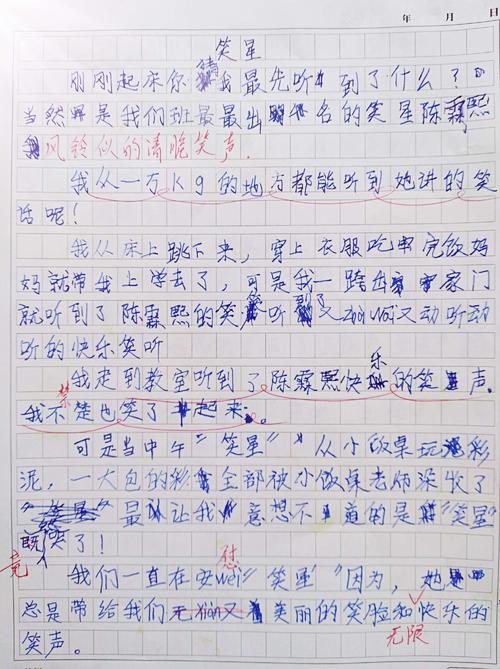 年 月 日
笑星
刚刚起床你猜我最先听到了什么？
当然是我们班最最出名的笑星陈霖熙
风铃似的清脆笑声.
我从一万kg的地方都能听到她讲的笑
话呢！
我从床上跳下来，穿上衣服吃完饭妈
妈就带我上学去了，可是我一跨出家门
就听到了陈霖熙的笑声听了又 又动听动
听的快乐笑听
我走到教室听到了陈霖熙快乐的笑声
我不禁也笑了起来。
可是当中午“笑星”从小饭桌玩彩
泥，一大包的彩 全部被小饭桌老师没收了
最让我意想不到的是“笑星”
既然笑了！
竟
我们一直在安wei慰“笑星”因为，她
总是带给我们无xian又美丽的笑脸和快乐的
无限
笑声。